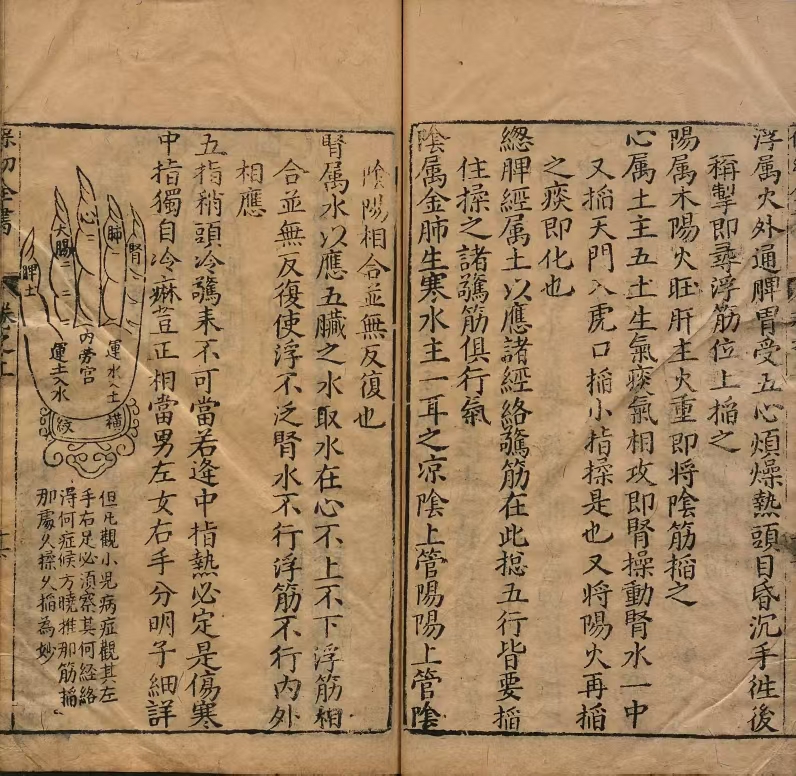 浮属火外通脾胃受五心煩燥熱頭目昏沉手徃後
稱掣即尋浮筋位上掐之
陽属木陽火旺肝主火重即將陰筋掐之
心属土主五土生氣痰氣相攻即腎操動腎水一中
又掐天門入虎口掐小指揉是也又將陽火再掐
之痰即化也
緫脾經属土以應諸經絡驚筋在此揔五行皆要掐
住揉之諸驚筋俱行氣
陰属金肺生寒水主一耳之凉陰上管陽陽上管陰
陰陽相合並無反復也
腎属水以應五臟之水取水在心不上不下浮筋相
合並無反復使浮不泛腎水不行浮筋不行内外
相應
五指稍頭冷驚来不可當若逢中指熱必定是傷寒
中指獨自冷痳荳正相當男左女右手分明子細詳
腎
肺
心
大腸
脾土
内劳宫
運水入土
運土入水
横
紋
但凡觀小児病症觀其左
手右足必湏察其何経絡
淂何症候方曉推那筋掐
那處久揉久掐為妙
全書
卷之上